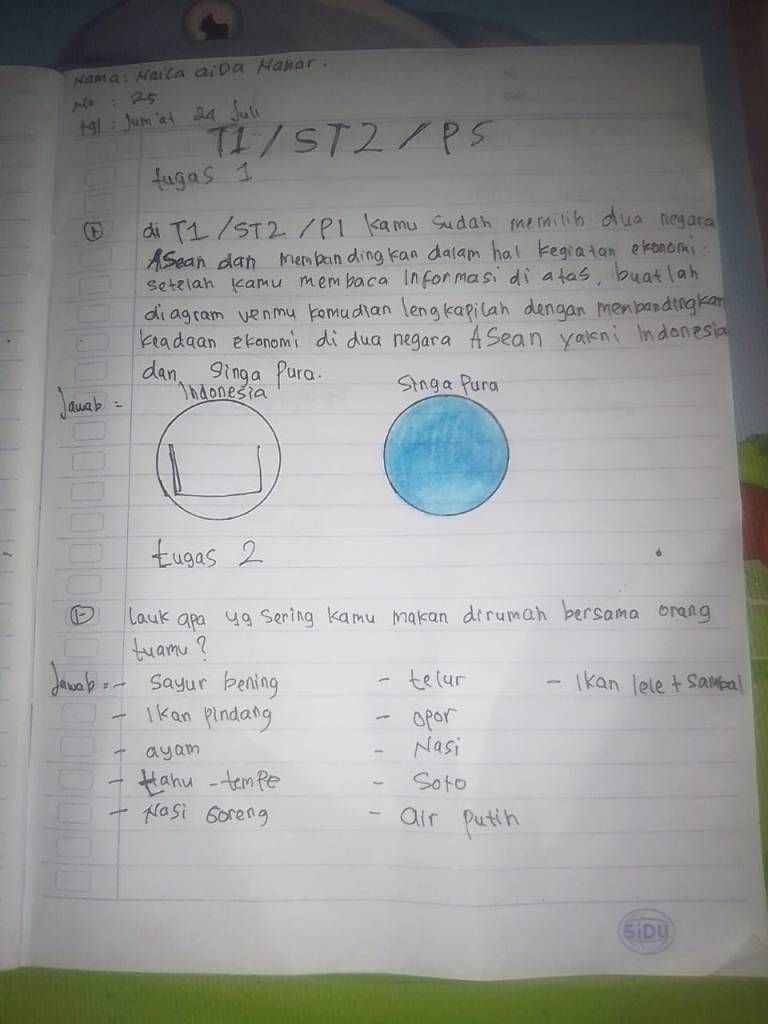 Nama: Naila aida Nahar.
No : 25
tgl : Jum'at 24 Juli
T1/ST2/P5
tugas 1
1 di T1/ST2/P1 kamu sudah memilih dua negara
ASean dan membandingkan dalam hal kegiatan ekonomi.
setelah kamu membaca informasi di atas, buatlah
diagram venmu kemudian lengkapilah dengan membandingkan
keadaan ekonomi di dua negara ASean yakni Indonesia
dan Singa Pura.
Jawab =
Indonesia
Singa Pura
tugas 2
1 lauk apa yg sering kamu makan dirumah bersama orang
tuamu?
Jawab = - Sayur bening - telur - Ikan lele + Sambal
- Ikan pindang - opor
- ayam - Nasi
- tahu - tempe - Soto
- Nasi Goreng - air putih
SiDU